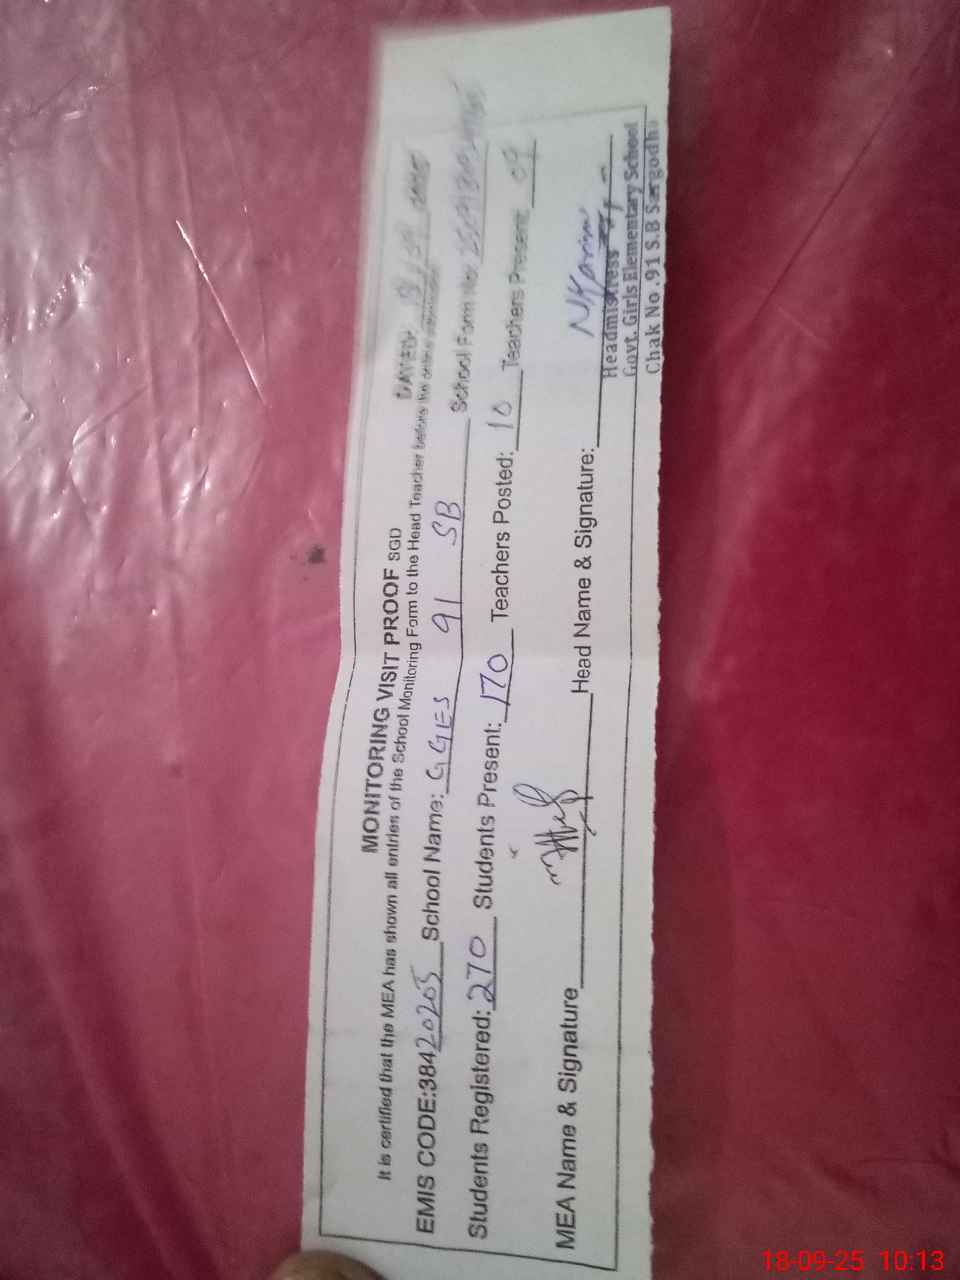 MONITORING VISIT PROOF SGD
DATED:
It is certified that the MEA has shown all entries of the School Monitoring Form to the Head Teacher before the online
EMIS CODE:38420205 School Name: GGES 91 SB School Form No:
Students Registered: 270 Students Present: 170 Teachers Posted: 10 Teachers Present 09
MEA Name & Signature Head Name & Signature:
Headmistress
Govt. Girls Elementary School
Chak No.91 S.B Sargodh
18-09-25 10:13